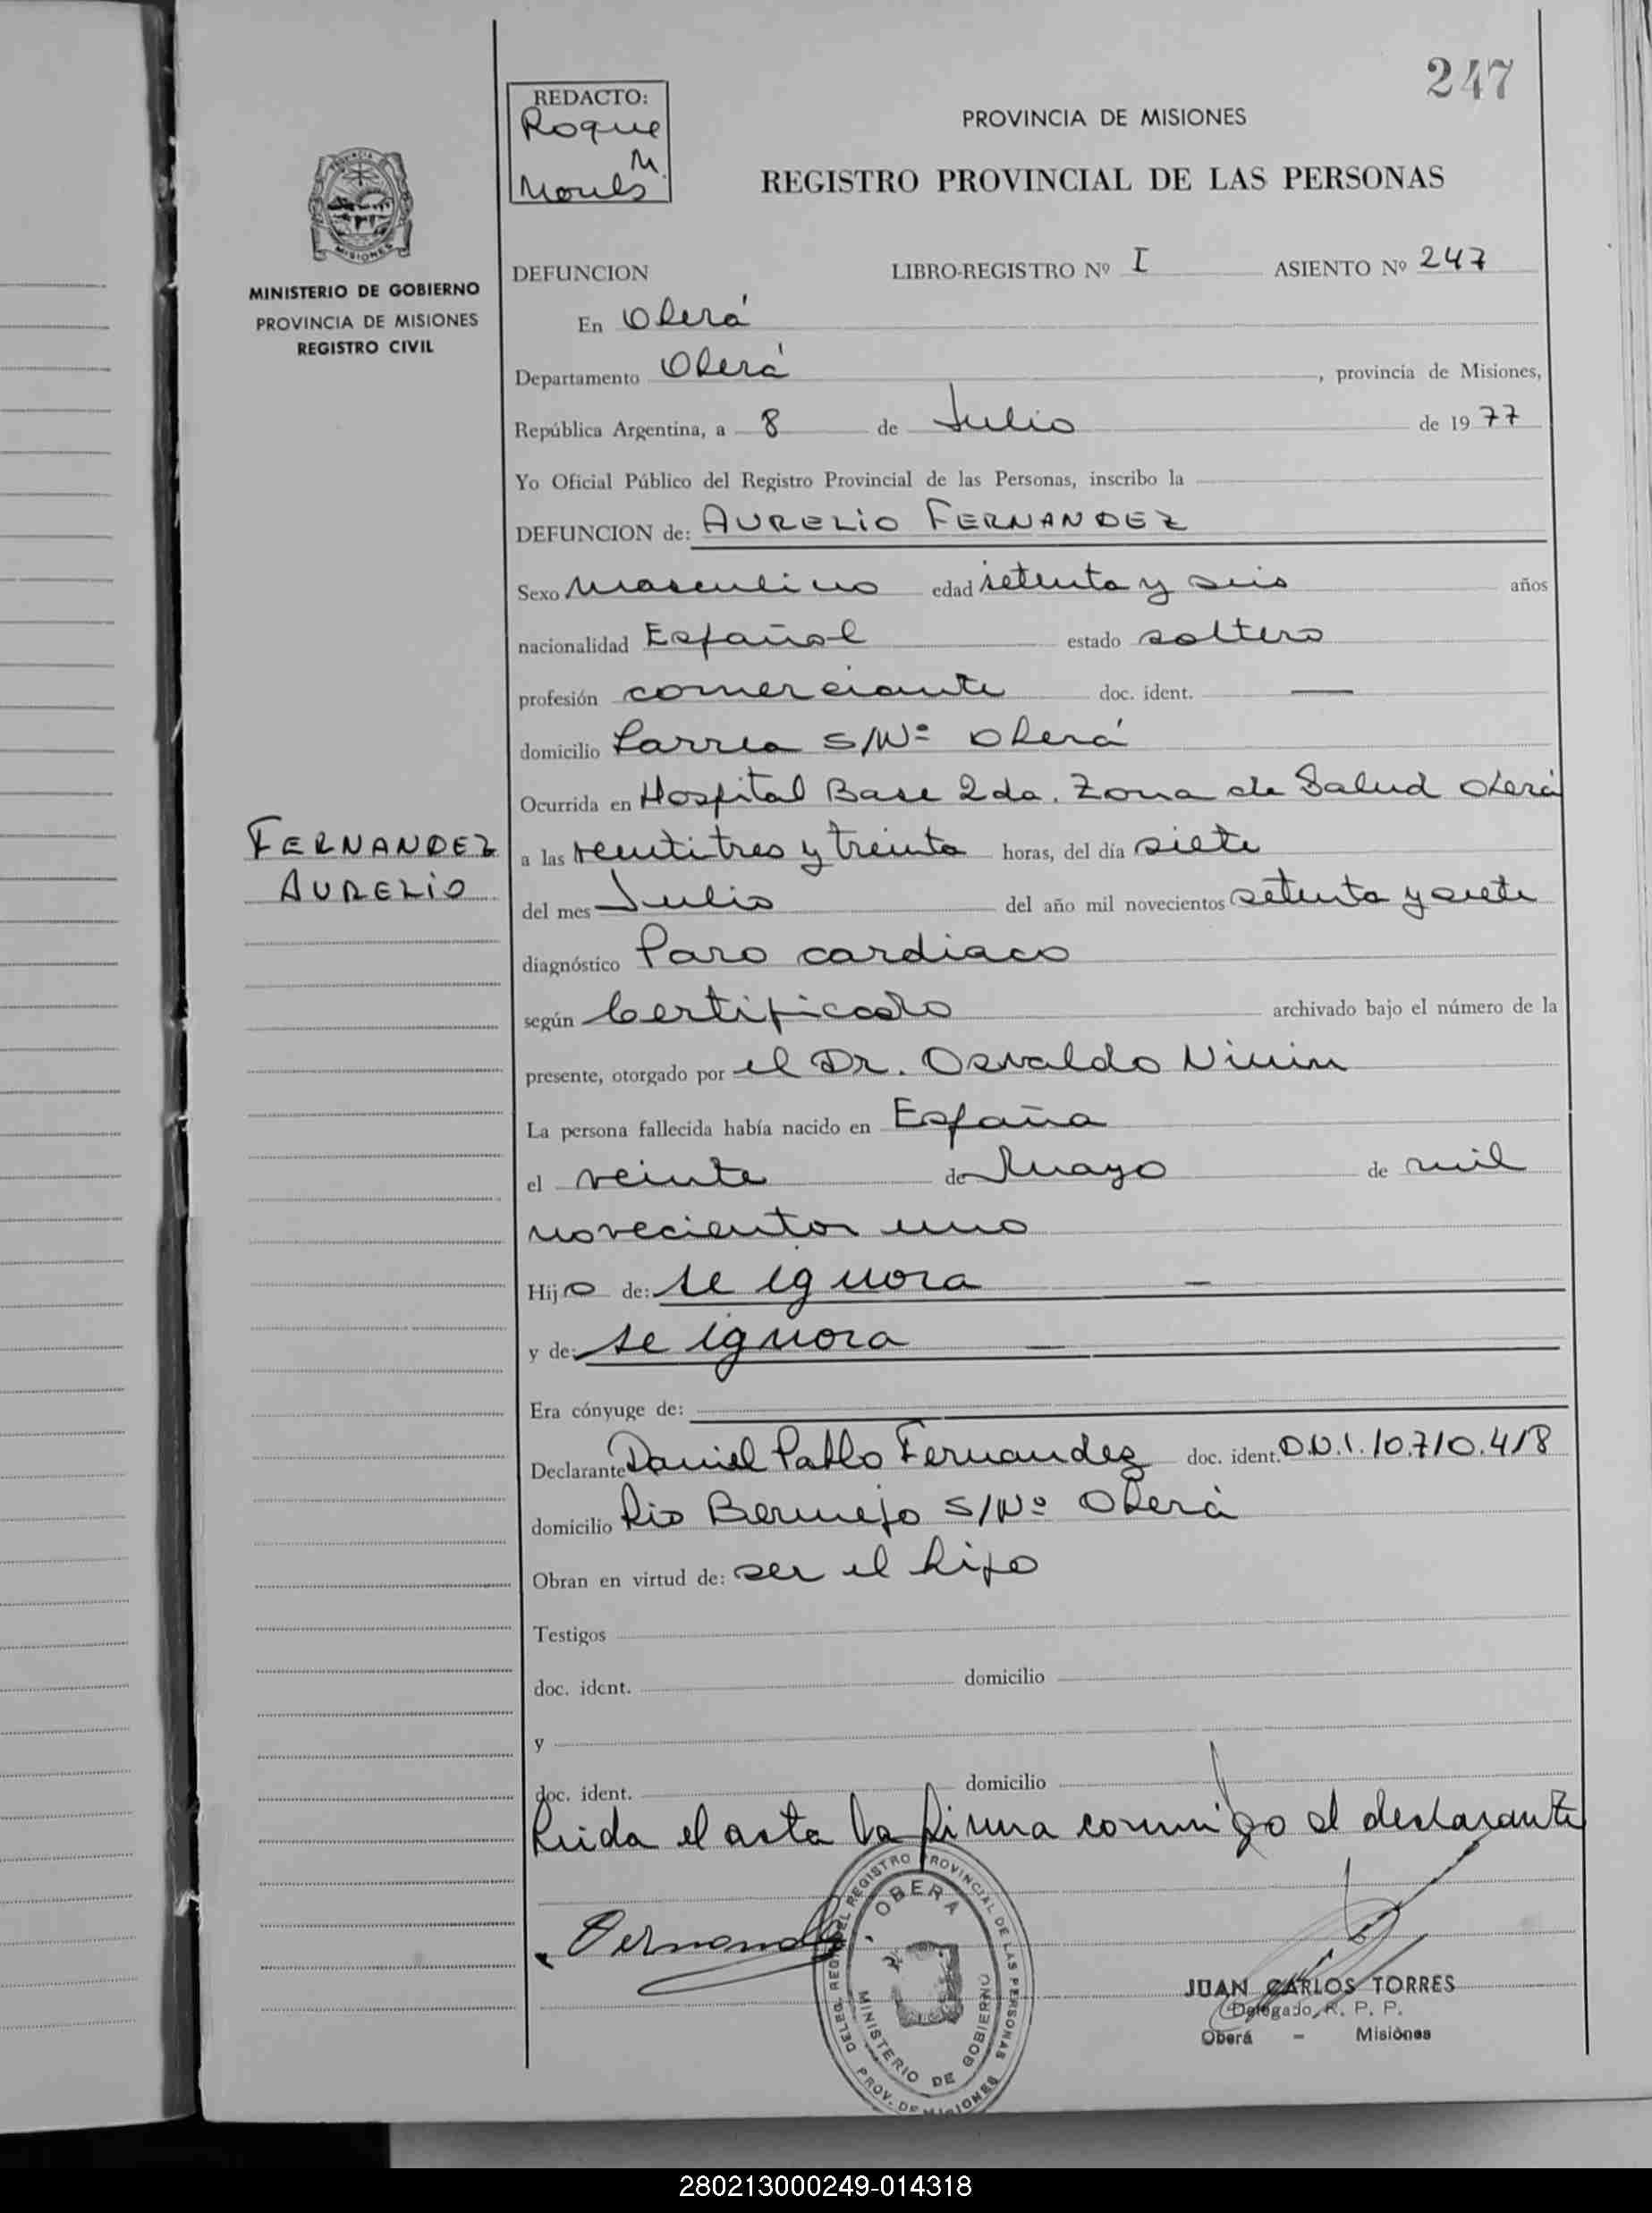 247
REDACTO:
Roque
M.
PROVINCIA DE MISIONES
REGISTRO PROVINCIAL DE LAS PERSONAS
MISIONES
MINISTERIO DE GOBIERNO
PROVINCIA DE MISIONES
REGISTRO CIVIL
DEFUNCION LIBRO-REGISTRO Nº I ASIENTO Nº 247
En Oberá
Departamento Oberá, provincia de Misiones,
República Argentina, a 8 de Julio de 1977
Yo Oficial Público del Registro Provincial de las Personas, inscribo la
DEFUNCION de: AURELIO FERNANDEZ
Sexo Masculino edad setenta y seis años
nacionalidad Español estado soltero
profesión comerciante doc. ident. —
domicilio Larrea S/Nº Oberá
Ocurrida en Hospital Base 2da. Zona de Salud Oberá
FERNANDEZ
AURELIO
a las veintitres y treinta horas, del día siete
del mes Julio del año mil novecientos setenta y siete
diagnóstico Paro cardiaco
según Certificado archivado bajo el número de la
presente, otorgado por el Dr. Osvaldo
La persona fallecida había nacido en España
el veinte de Mayo de mil
novecientos uno
Hijo de: se ignora —
y de: se ignora —
Era cónyuge de:
Declarante Daniel Pablo Fernandez doc. ident. D.N.I. 10.710.418
domicilio Rio Bermejo S/Nº Oberá
Obran en virtud de: ser el hijo
Testigos
doc. ident. domicilio
y
doc. ident. domicilio
Leida el acta la firma conmigo el declarante
Fernandez
DELEG. REG. DEL REGISTRO PROVINCIAL DE LAS PERSONAS
OBERA
MINISTERIO DE GOBIERNO
PROV. DE MISIONES
JUAN CARLOS TORRES
Delegado R. P. P.
Oberá - Misiones
280213000249-014318